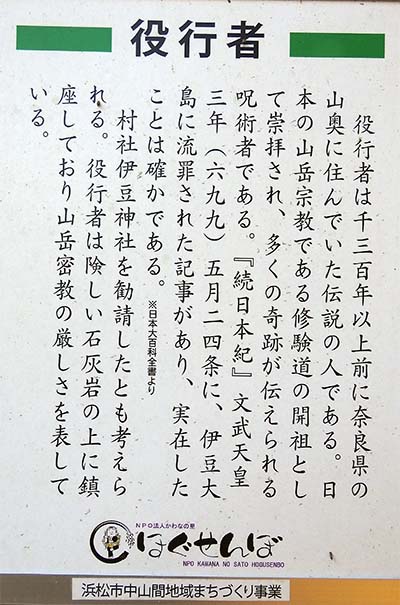 役行者
役行者は千三百年以上前に奈良県の
山奥に住んでいた伝説の人である。日
本の山岳宗教である修験道の開祖とし
て崇拝され、多くの奇跡が伝えられる
呪術者である。『続日本紀』文武天皇
三年（六九九）五月二四条に、伊豆大
島に流罪された記事があり、実在した
ことは確かである。 ※日本大百科全書より
村社伊豆神社を勧請したとも考えら
れる。役行者は険しい石灰岩の上に鎮
座しており山岳密教の厳しさを表して
いる。
NPO法人かわなの里
はぐせんぼ
NPO KAWANA NO SATO HOGUSENBO
浜松市中山間地域まちづくり事業